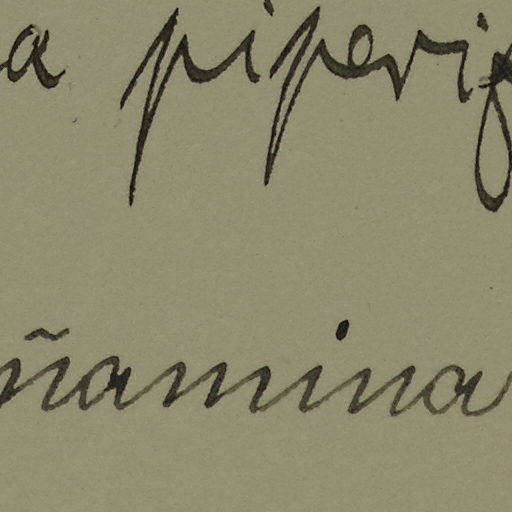 a piperif
ñamina